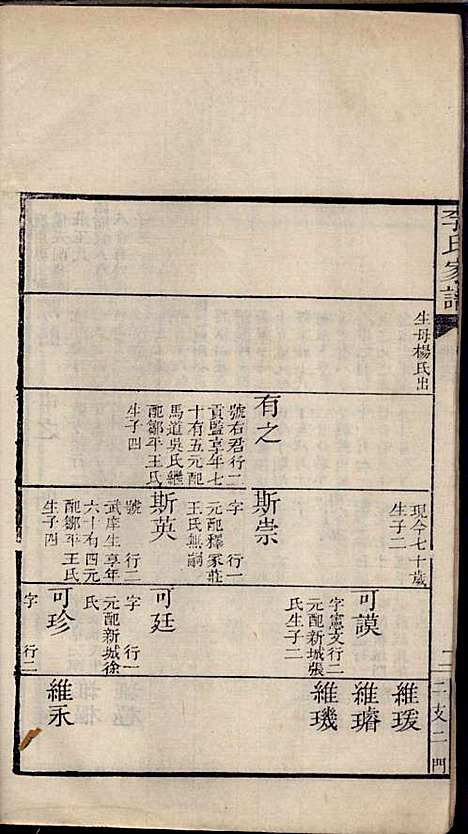 李氏家譜
二
二支二門
生母楊氏出
有之
號右君行二
貢監享年七
十有五元配
馬道吳氏繼
配鄒平王氏
生子四
現今七十歲
生子二
斯崇
字 行一
元配釋冢莊
王氏無嗣
斯英
號 行二
武庠生享年
六十有四元
配鄒平王氏
生子四
可謨
字憲文行二
元配新城張
氏生子二
可廷
字 行一
元配新城徐
氏
可珍
字 行二
維瑗
維璿
維璣
維永